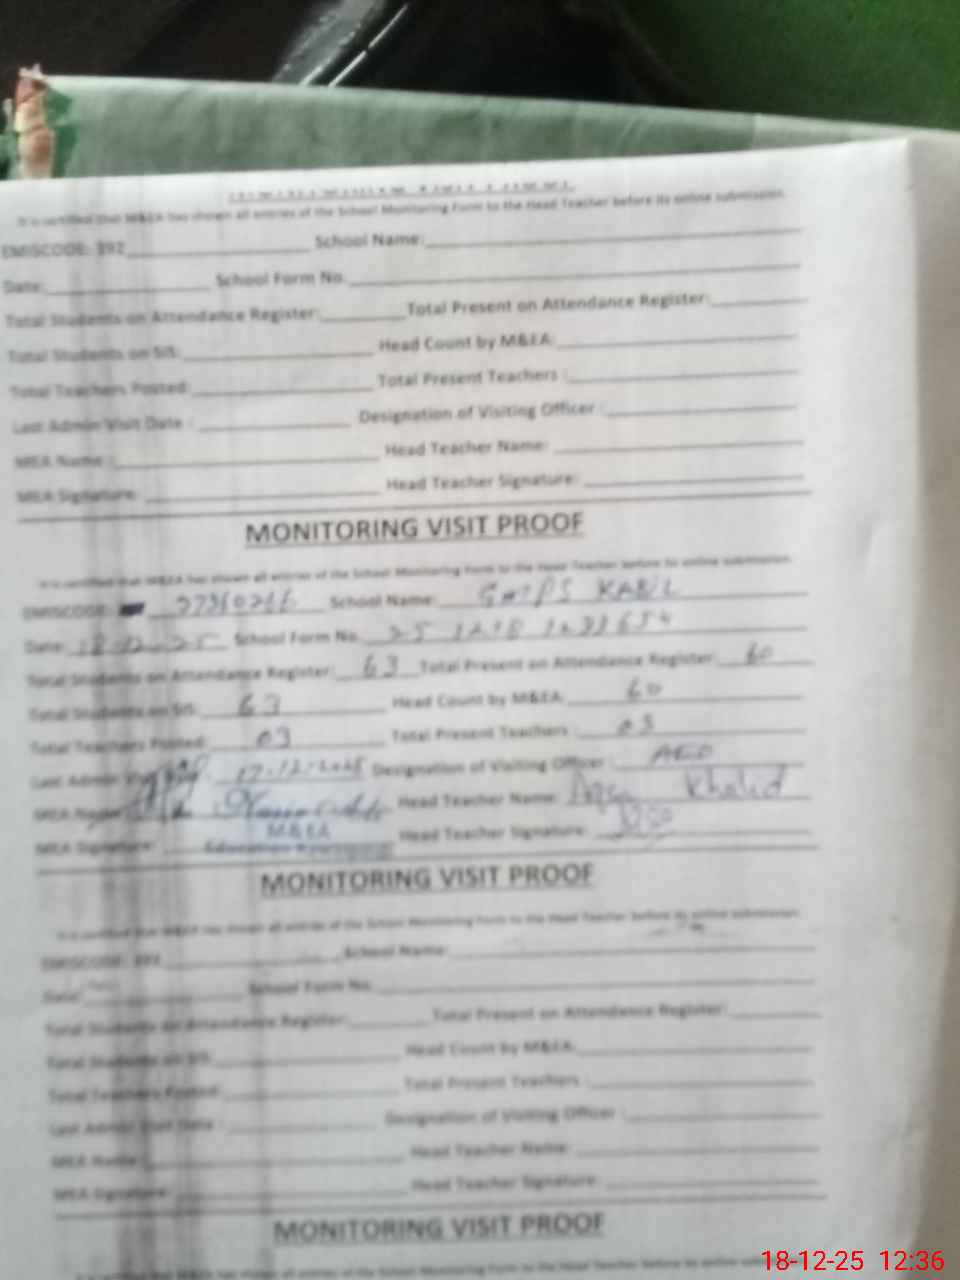 It is certified that M&EA has shown all entries of the School Monitoring Form to the Head Teacher before its online submission.
EMISCODE: 392 School Name:
Date: School Form No.
Total Students on Attendance Register: Total Present on Attendance Register:
Total Students on SIS: Head Count by M&EA:
Total Teachers Posted: Total Present Teachers :
Last Admin Visit Date : Designation of Visiting Officer :
MEA Name : Head Teacher Name:
MEA Signature: Head Teacher Signature:
MONITORING VISIT PROOF
It is certified that M&EA has shown all entries of the School Monitoring Form to the Head Teacher before its online submission.
EMISCODE: School Name:
Date: 18-12-25 School Form No.
Total Students on Attendance Register: 63 Total Present on Attendance Register: 60
Total Students on SIS: 63 Head Count by M&EA: 60
Total Teachers Posted: 03 Total Present Teachers : 03
Last Admin 17-12-2025 Designation of Visiting Officer : AEO
MEA Name Head Teacher Name: Khalid
M&EA
MEA Signature: Education Head Teacher Signature:
MONITORING VISIT PROOF
It is certified that M&EA has shown all entries of the School Monitoring Form to the Head Teacher before its online submission.
EMISCODE: 392 School Name:
Date: School Form No.
Total Students on Attendance Register: Total Present on Attendance Register:
Total Students on SIS: Head Count by M&EA:
Total Teachers Posted: Total Present Teachers :
Last Admin Visit Date : Designation of Visiting Officer :
MEA Name : Head Teacher Name:
MEA Signature: Head Teacher Signature:
MONITORING VISIT PROOF
It is certified that M&EA has shown all entries of the School Monitoring Form to the Head Teacher before its online
18-12-25 12:36